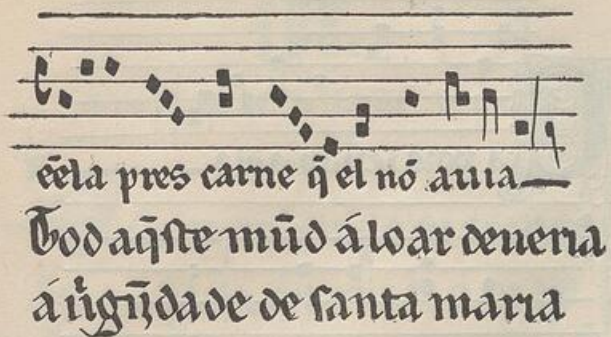 eēla pres carne q̄ el nō auia
Tod aq̄ste mūd á loar deueria
á ũgῡdade de santa maria